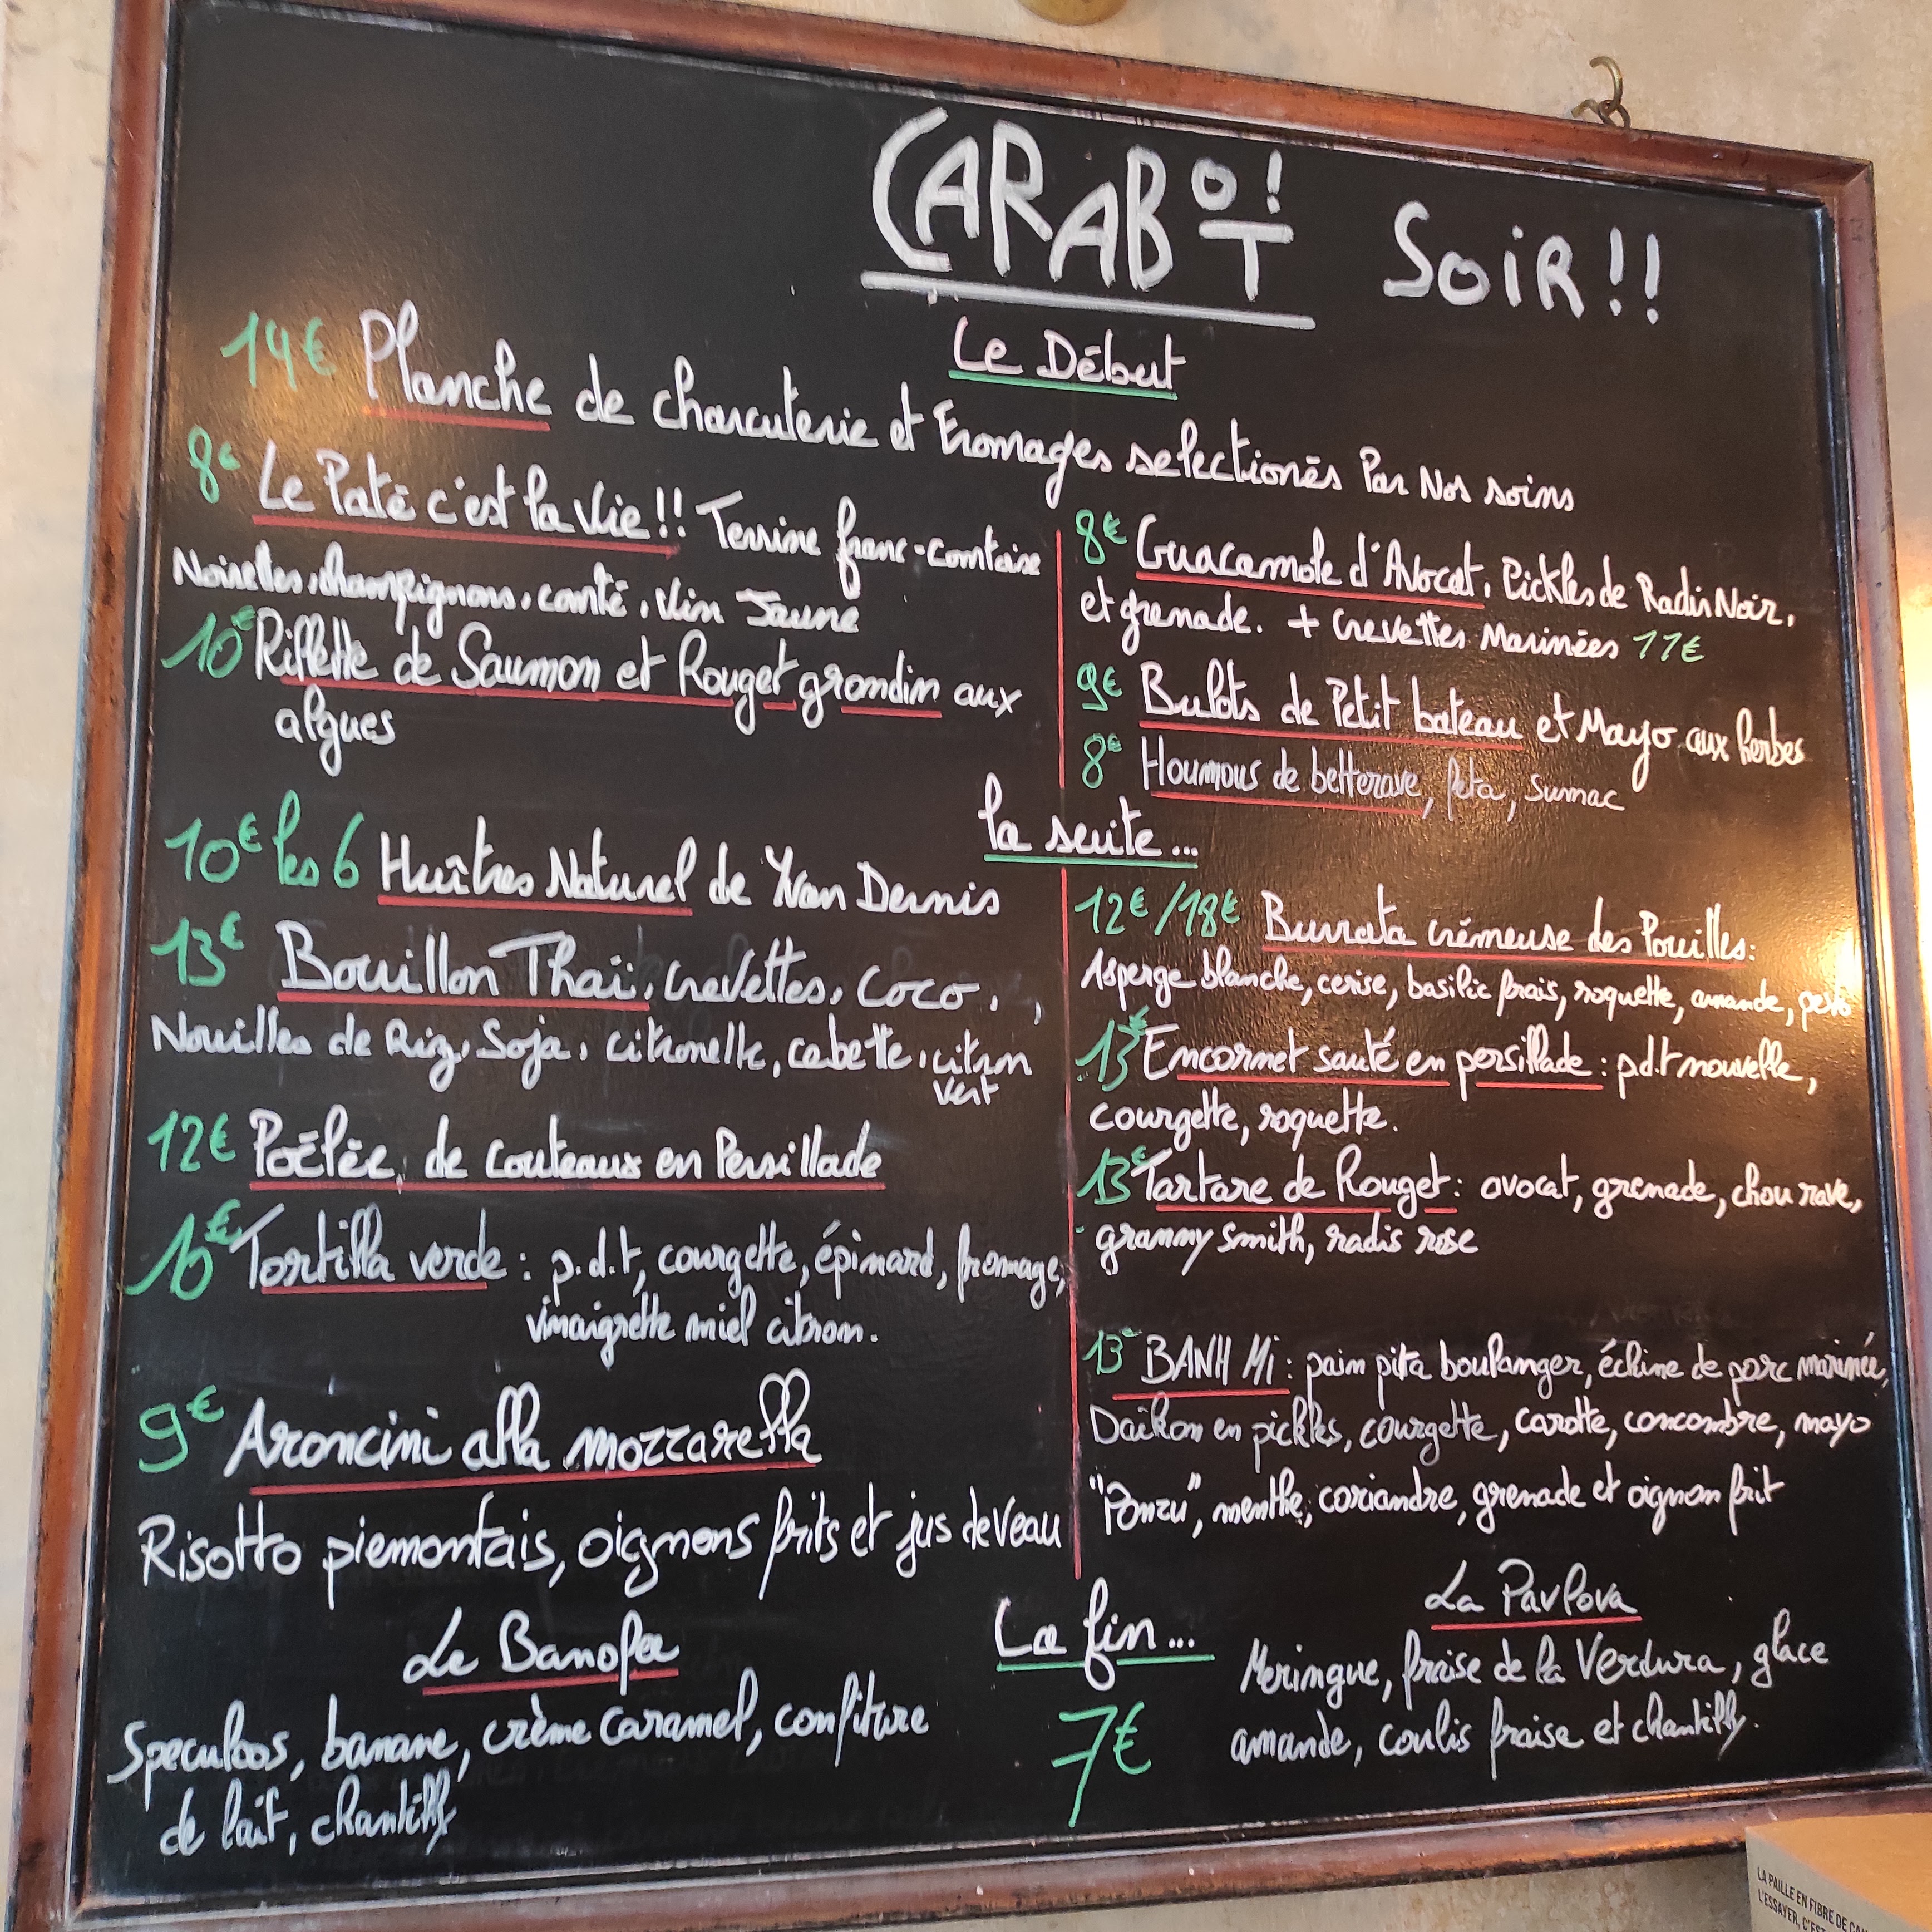 CARABOT! SOIR!!
Le Début
14€ Planche de charcuterie et Fromages selectionés Par Nos soins
8€ Le Paté c'est la vie!! Terrine franc-comtoise
Noisettes, champignons, comté, Vin Jaune
10€ Rillette de Saumon et Rouget grondin aux
algues
8€ Guacamole d'Avocat, Pickles de Radis Noir,
et grenade. + Crevettes Marinées 11€
9€ Bulots de Petit bateau et Mayo aux herbes
8€ Houmous de betterave, feta, sumac
la suite...
10€ les 6 Huîtres Naturel de Yvan Dernis
13€ Bouillon Thaï, crevettes, coco,
Nouilles de Riz, Soja, citronelle, cebette, citron
vert
12€ Poêlée de couteaux en Persillade
10€ Tortilla verde : p.d.t, courgette, épinard, fromage,
vinaigrette miel citron.
9€ Aroncini alla mozzarella
Risotto piemontais, oignons frits et jus de veau
12€/18€ Burrata crémeuse des Pouilles:
Asperge blanche, cerise, basilic frais, roquette, amande, pesto
13€ Encornet sauté en persillade : p.d.t nouvelle,
courgette, roquette.
13€ Tartare de Rouget : avocat, grenade, chou rave,
granny smith, radis rose
13€ BANH Mi : pain pita boulanger, échine de porc marinée,
Daikon en pickles, courgette, carotte, concombre, mayo
"Ponzu", menthe, coriandre, grenade et oignon frit
La fin...
7€
Le Banofee
Speculoos, banane, crème caramel, confiture
de lait, chantilly
La Pavlova
Meringue, fraise de la Verdura, glace
amande, coulis fraise et chantilly.
LA PAILLE EN FIBRE DE CAN
L'ESSAYER, C'EST